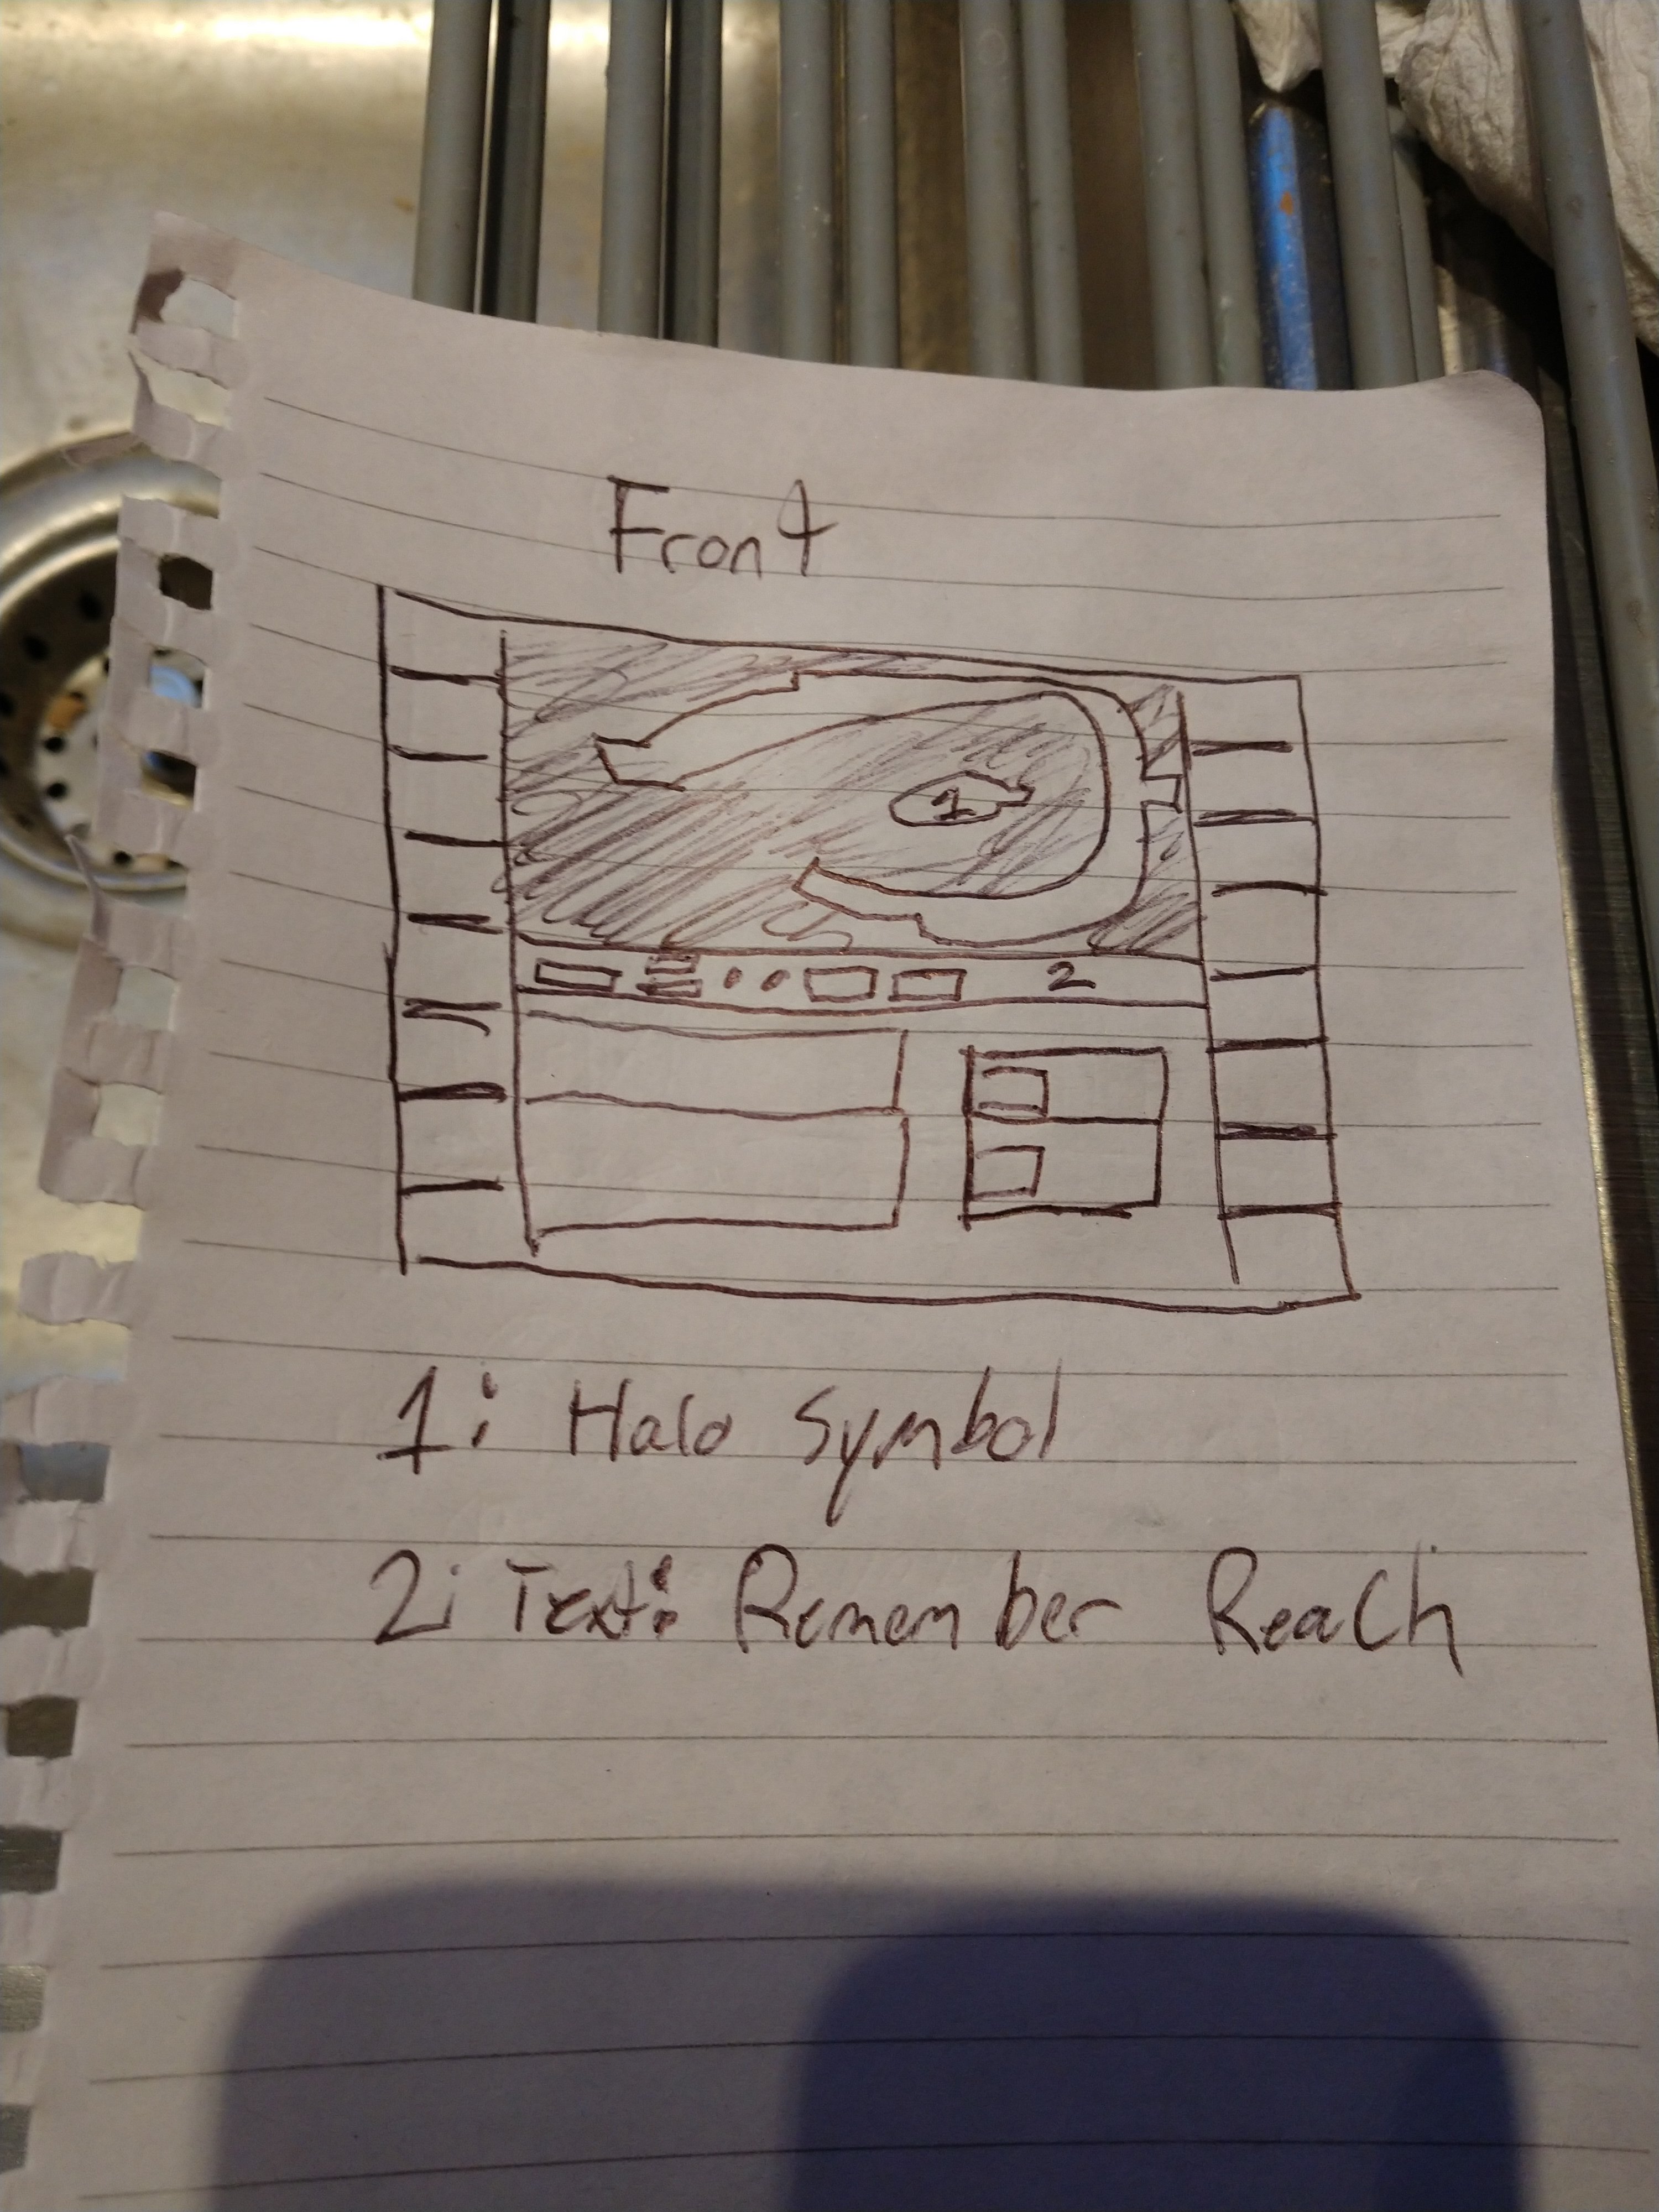 Front
1
2
1: Halo Symbol
2: Text: Remember Reach